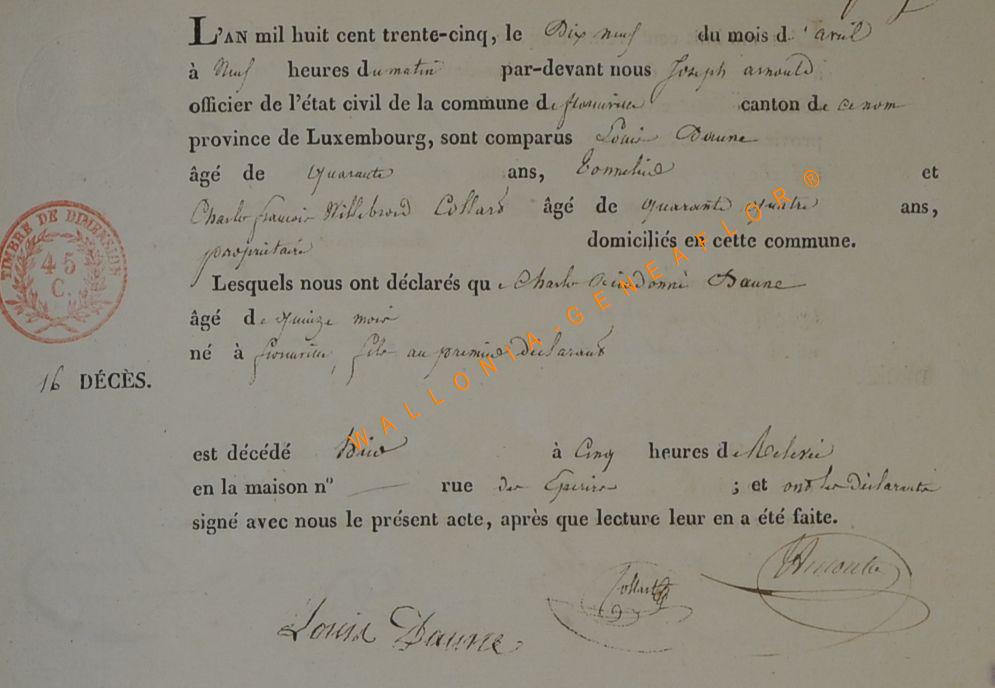 L'AN mil huit cent trente-cinq, le Dix neuf du mois d'avril
à Neuf heures du matin par-devant nous Joseph arnould
officier de l'état civil de la commune de florenville canton de ce nom
province de Luxembourg, sont comparus Louis Daune
âgé de quarante ans, Tonnelier et
Charles françois Willebrord Collard âgé de quarante quatre ans,
propriétaire domiciliés en cette commune.
Lesquels nous ont déclarés que Charles Dieudonné Daune
âgé de quinze mois
né à florenville, fils au premier déclarant
16 DÉCÈS.
est décédé hier à Cinq heures de Relevée
en la maison n° rue des ; et ont les déclarants
signé avec nous le présent acte, après que lecture leur en a été faite.
Collard Arnould
Louis Daune
TIMBRE DE DIMENSION
45
C.
WALLONIA-GENEAFLOR®